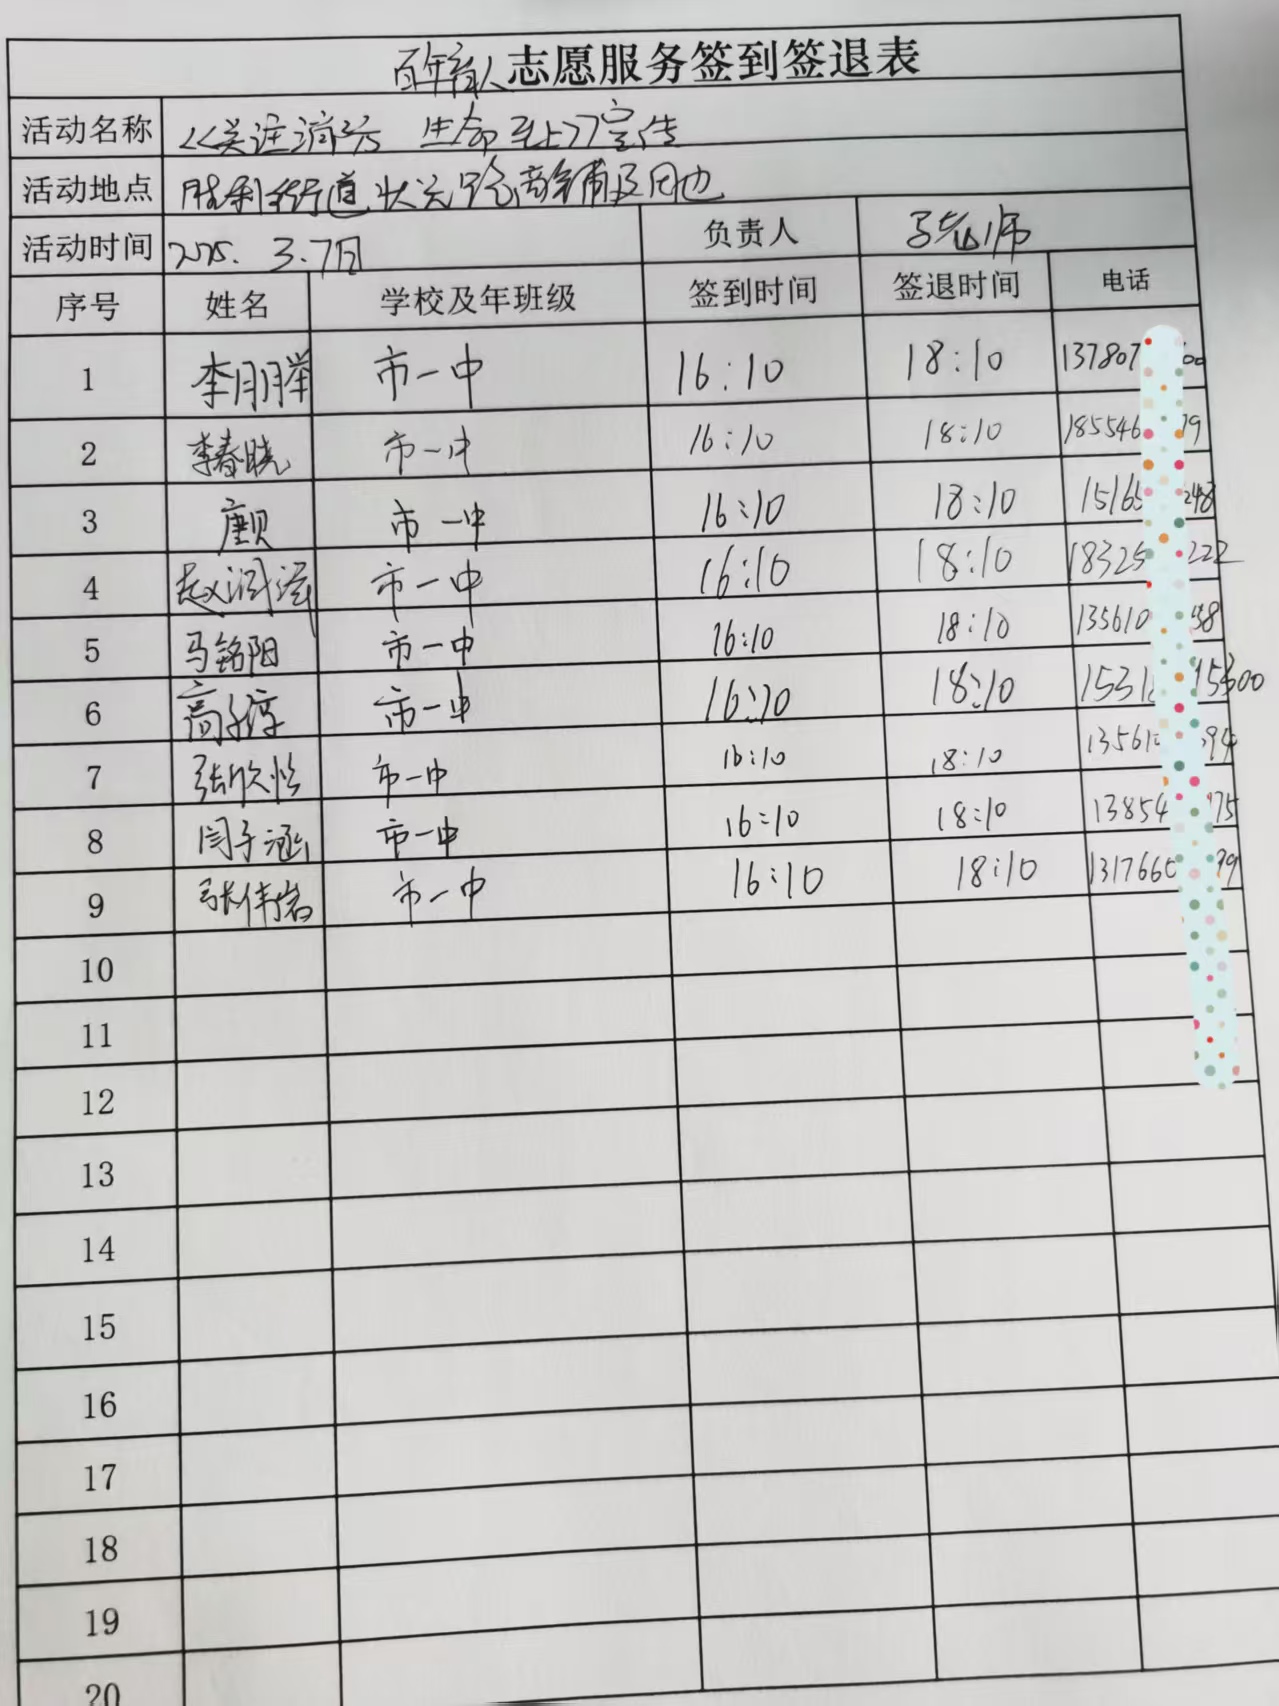 百年育人志愿服务签到签退表
活动名称 《关注消防 生命至上》宣传
活动地点 胜利街道状元路商铺及周边
活动时间 2025. 3.7日 负责人 马老师
序号 姓名 学校及年班级 签到时间 签退时间 电话
1 李朋举 市一中 16:10 18:10 137807 00
2 李春晓 市一中 16:10 18:10 185546 79
3 市一中 16:10 18:10 15165 248
4 赵润滋 市一中 16:10 18:10 18325 222
5 马铭阳 市一中 16:10 18:10 135610 58
6 高子淳 市一中 16:10 18:10 1531 15300
7 张欣怡 市一中 16:10 18:10 13561 94
8 闫子涵 市一中 16:10 18:10 13854 75
9 张伟岩 市一中 16:10 18:10 1317660 99
10
11
12
13
14
15
16
17
18
19
20